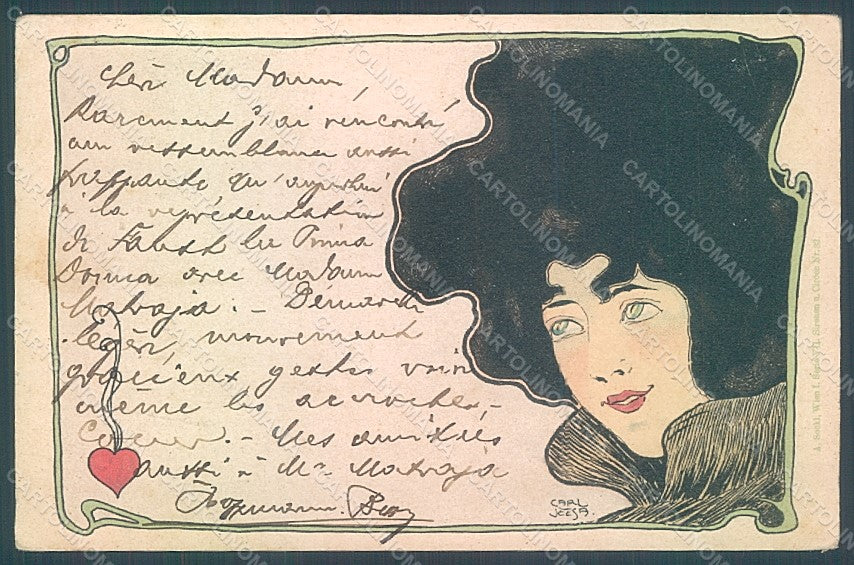 Chère Madame,
Rarement j'ai rencontré
une ressemblance aussi
frappante qu'aujourd'hui
à la représentation
de Faust la Prima
Donna avec Madame
Matraja. – Démarche
légère, mouvement
gracieux gestes voir
même les accroche-
Coeur. – Mes amitiés
aussi à Mr Matraja
CARL
JEZSA.
CARTOLINOMANIA